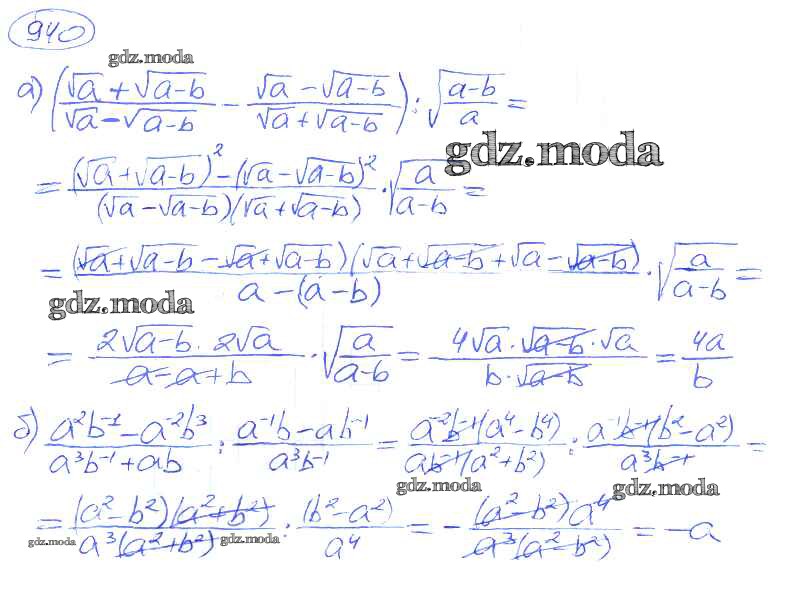 940
gdz.moda
а) ((√a + √(a-b))/(√a - √(a-b)) - (√a - √(a-b))/(√a + √(a-b))) : √((a-b)/a) =
gdz.moda
= ((√a + √(a-b))² - (√a - √(a-b))²)/((√a - √(a-b))(√a + √(a-b))) · √(a/(a-b)) =
= ((√a + √(a-b) - √a + √(a-b))(√a + √(a-b) + √a - √(a-b)))/(a - (a-b)) · √(a/(a-b)) =
gdz.moda
= (2√(a-b) · 2√a)/(a - a + b) · √(a/(a-b)) = (4√a · √(a-b) · √a)/(b · √(a-b)) = 4a/b
б) (a²b⁻¹ - a⁻²b³)/(a³b⁻¹ + ab) : (a⁻¹b - ab⁻¹)/(a³b⁻¹) = (a⁻²b⁻¹(a⁴ - b⁴))/(ab⁻¹(a² + b²)) : (a⁻¹b⁻¹(b² - a²))/(a³b⁻¹) =
gdz.moda gdz.moda
= ((a² - b²)(a² + b²))/(a³(a² + b²)) : (b² - a²)/a⁴ = - ((a² - b²)a⁴)/(a³(a² - b²)) = -a
gdz.moda gdz.moda